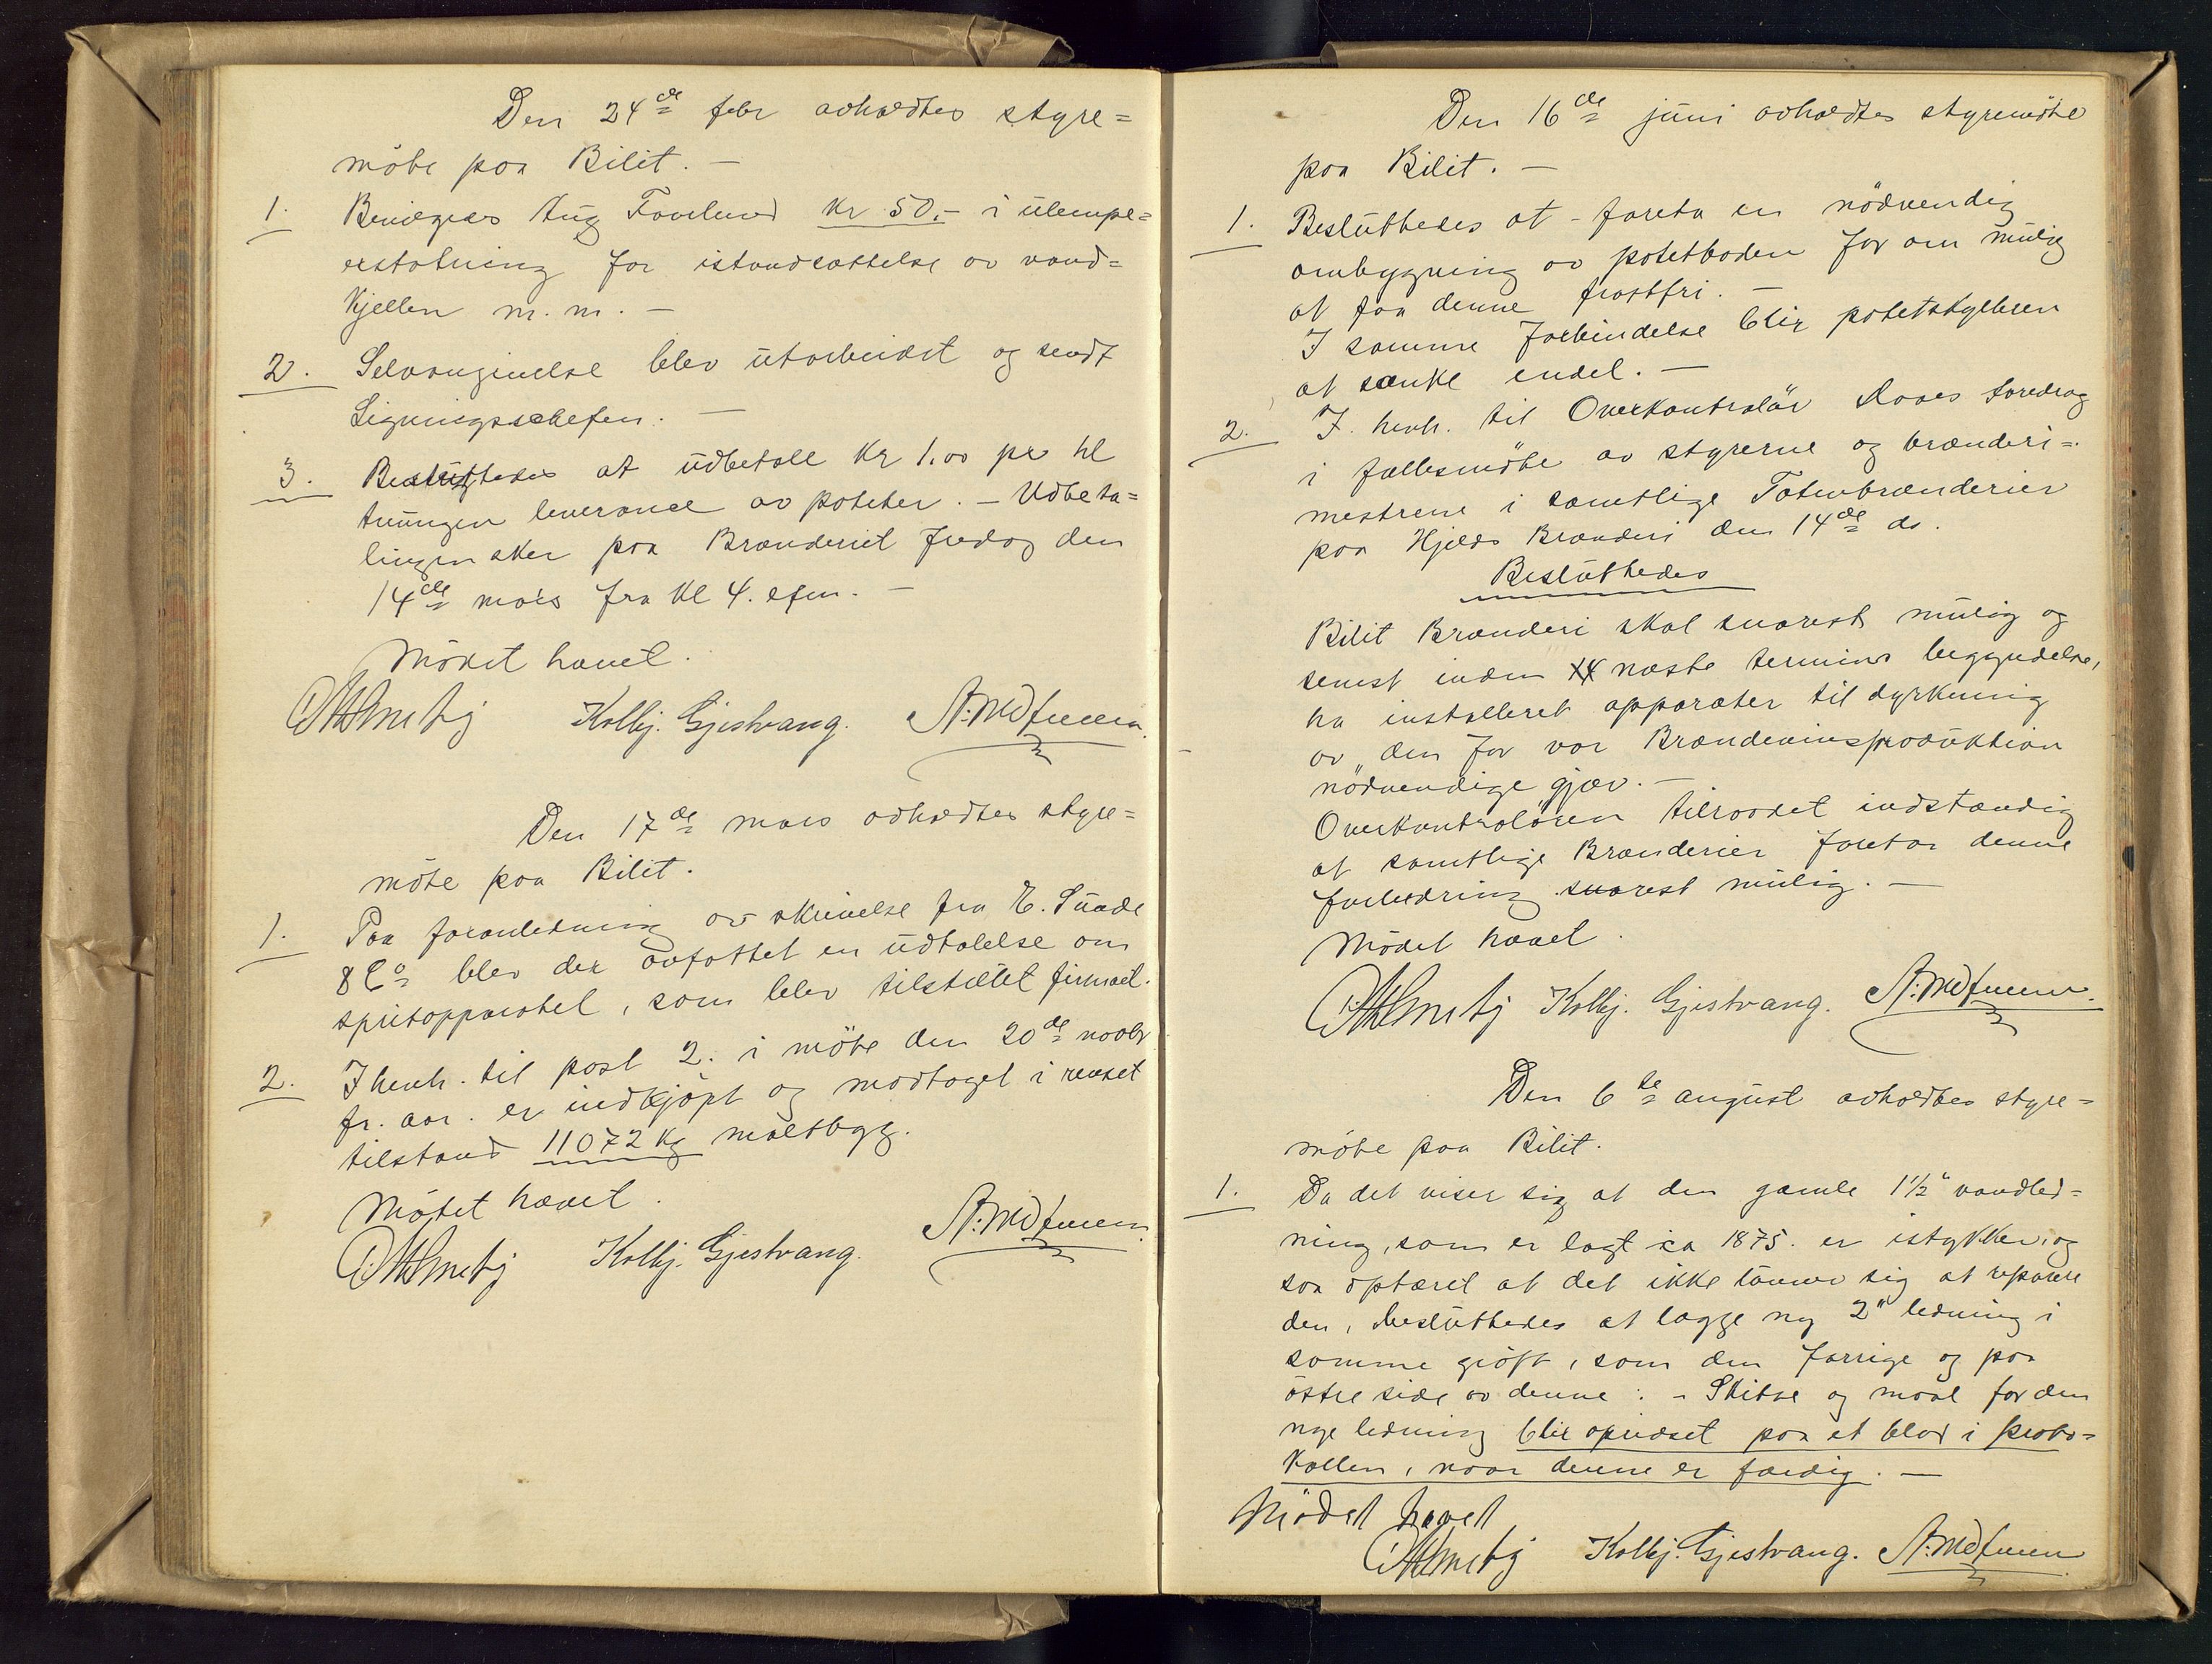 Den 24de febr avholdtes styre=
möte paa Bilit. —
1. Bevilgedes Aug kr 50.- i ulempe=
erstatning for istandsættelse av vand=
kjellen m. m. —
2. Selvangivelse blev utarbeidet og sendt
Ligningschefen. —
3. Besluttedes at udbetale kr 1.00 pr hl
tvungen leverance av poteter. — Udbeta=
lingen sker paa Brænderiet fredag den
14de mars fra kl 4. efm. —
Mödet hævet.
Kolbj. Gjestvang.
Den 17de mars avholdtes styre=
möte paa Bilit.
1. Paa foranledning av skrivelse fra E. Sunde
& Co blev der avfattet en udtalelse om
spritapparatet, som blev tilstillet firmaet.
2. I henh. til post 2. i möte den 20de novbr
fr. aar. er indkjöpt og modtaget i renset
tilstand 11072 kg maltbygg.
Mötet hævet.
Kolbj. Gjestvang.
Den 16de juni avholdtes styremöte
paa Bilit. —
1. Besluttedes at foreta en nödvendig
ombygning av potetboden for om mulig
at faa denne frostfri. —
I samme forbindelse blir potetskylleren
at sænke endel. —
2. I. henh. til Overkontrolör Roaes foredrag
i fællesmöte av styrerne og brænderi=
mestrene i samtlige Totenbrænderier
paa Hjelds Brænderi den 14de ds.
Besluttedes
Bilit Brænderi skal snarest mulig og
senest inden næste termins begyndelse,
ha installeret apparater til dyrkning
av den for vor Brændevinsproduktion
nödvendige gjær. —
Overkontrolören tilraadet indstændig
at samtlige Brænderier foretar denne
forbedring snarest mulig. —
Mödet hævet.
Kolbj. Gjestvang.
Den 6te august avholdtes styre=
möte paa Bilit.
1. Da det viser sig at den gamle 1½" vandled=
ning, som er lagt ca 1875. er istykker, og
saa optæret at det ikke lönner sig at reparere
den, besluttedes at lægge ny 2" ledning i
samme gröft, som den forrige og paa
östre side av denne. - Skitse og maal for den
nye ledning blir oprisset paa et blad i proto=
kollen, naar denne er færdig. —
Mödet hævet
Kolbj. Gjestvang.